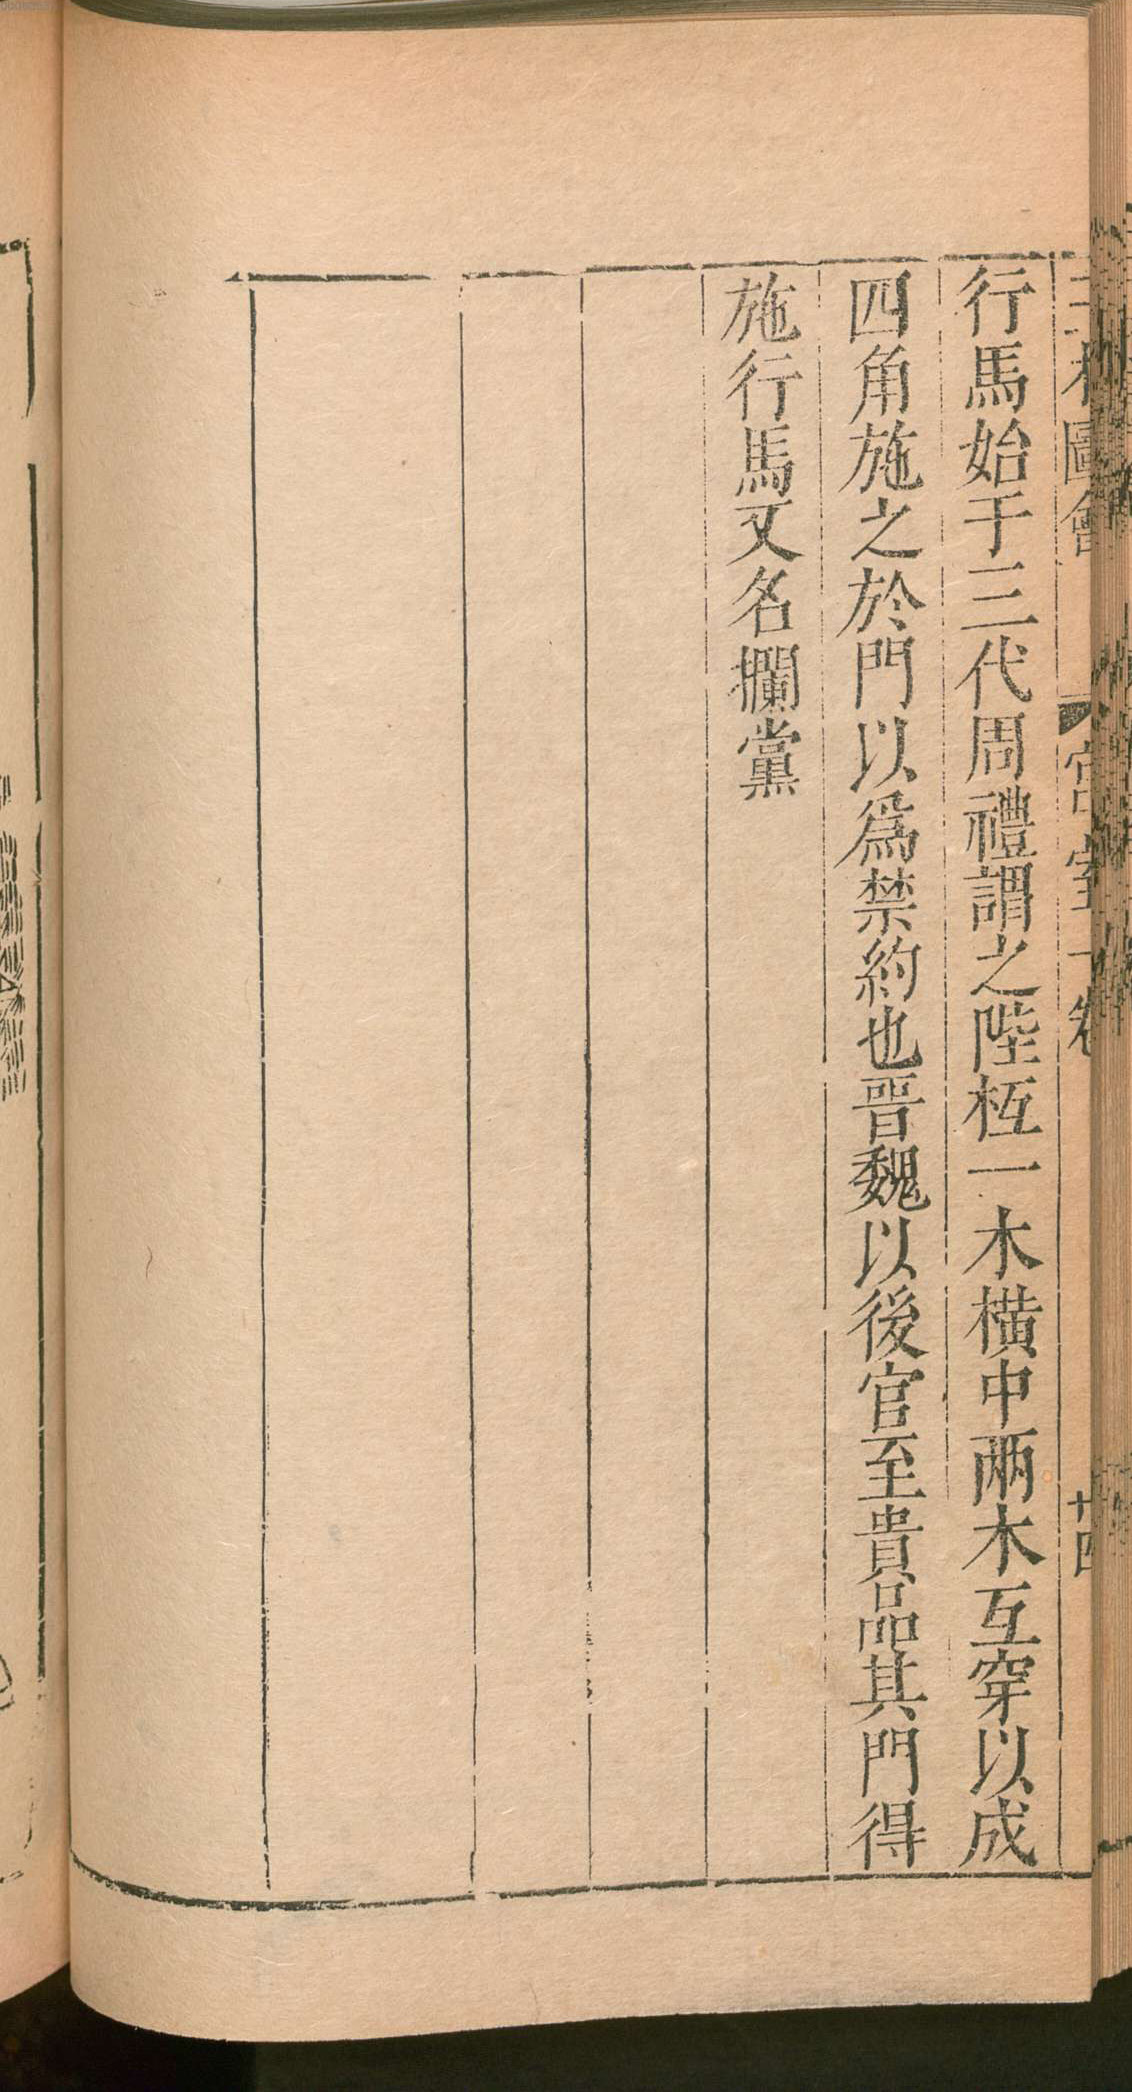 三才圖會 宮室一卷 廿四
行馬始于三代周禮謂之陛枑一木橫中兩木互穿以成
四角施之於門以爲禁約也晉魏以後官至貴品其門得
施行馬又名攔黨